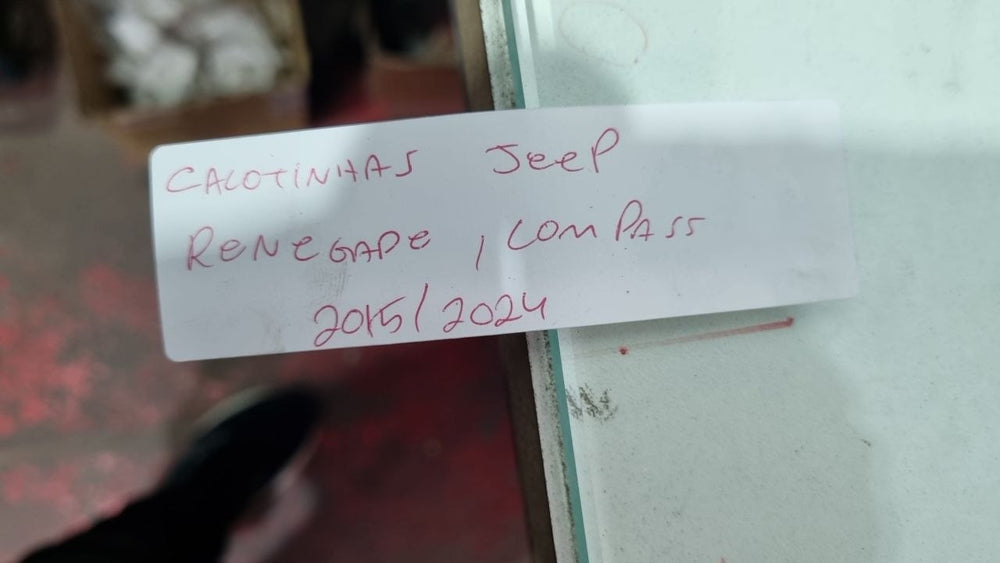 CALOTINHAS JeeP
ReNeGADe, COMPASS
2015/2024